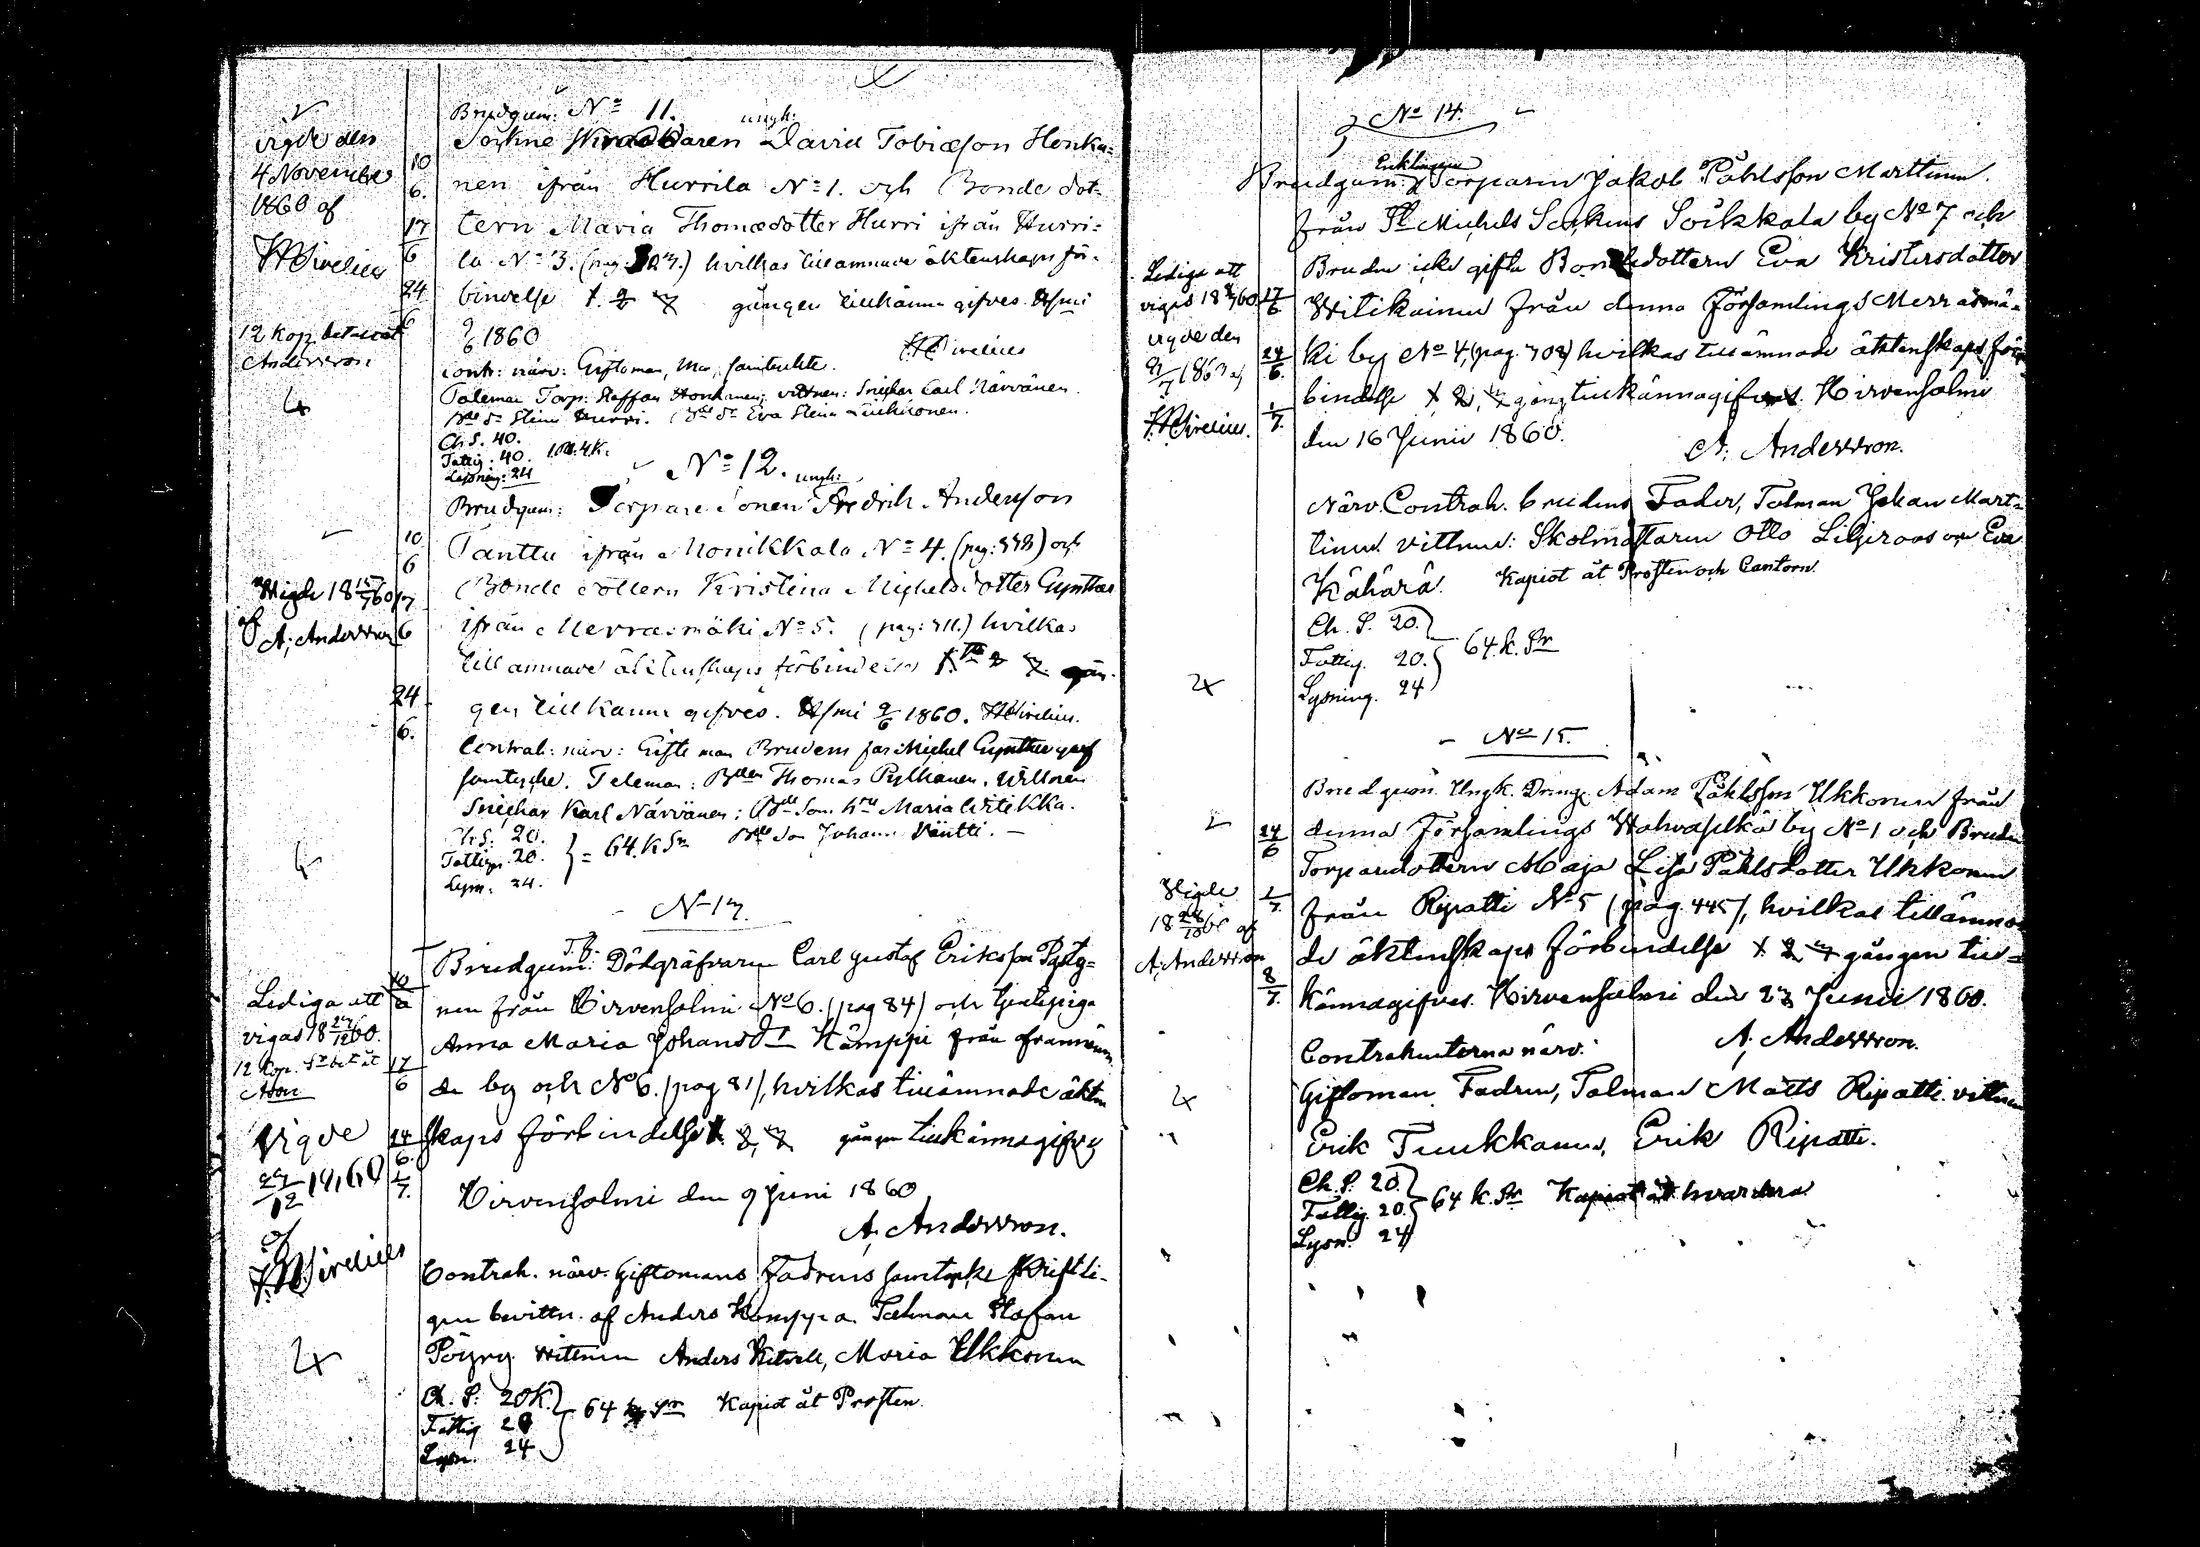 vigde den
4 November
1860 af
HSirelius
12 Kop. betalat
Andersson
10
6.
17
6
24
6
Brudgum: No 11. ungk:
Sockne Skräddaren David Tobiæson Honka-
nen ifrån Hurrila No 1. och Bonde dot-
tern Maria Thomædotter Hurri ifrån Hurri-
la No 3. (pag. 327.) hvilkas tillämnade äktenskaps för-
bindelse 1. 2 3 gången tillkänna gifves. Hsmi
9/6 1860
HSirelius
Contr: närv: Giftoman, Mor, samtyckte.
Taleman Torp: Staffan Honkanen, vittnen: Snickar Carl Närvänen
Eva Stina
Ch. S. 40.
Fattig. 40. 1 Rb. 4 K.
Lysning: 24
No 12. ungk:
Brudgum: Torpare Sonen Fredrik Andersson
Tanttu ifrån Monikkala No 4. (pag: 338) och
Bonde dottern Kristina Michelsdotter Gynther
ifrån Merrasmäki No 5. (pag: 711.) hvilkas
tillämnade äktenskaps förbindelse 1. 2 3. gån-
gen tillkänna gifves. Hsmi 9/6 1860. HSirelius.
Contrah: närv: Gifte man Brudens far Michel Gynther gaf
samtycke. Taleman: Bden Thomas Pylkänen. Wittnen
Snickar Karl Närvänen; Maria Witikka.
Johan Väntti.
Ch S: 20.
Fattign. 20. } = 64. k Sr
Lysn: 24.
10
6
17
6
24
6.
Wigde 18 15/7 60
af A; Andersson
No 13.
Brudgum: Dödgräfvaren Carl Gustaf Eriksson Pasty-
nen från Hirvensalmi No 6. (pag 84) och tjenstepiga
Anna Maria Johansdr Kämppi från ofvannämn
de by och No 6. (pag 81), hvilkas tillämnade äkten
skaps förbindelse 1. 2, 3 gången tillkännagifves
Hirvensalmi den 9 Juni 1860
A. Andersson.
Contrah. närv. Giftomans Fadrens samtycke skriftli-
gen bevittn. af Anders Kämppi a. Talman Stafan
Pöyry. Wittnen Anders Kitvell, Maria Ukkonen
Ch. S: 20 K.
Fattig 20 } 64 k Sr Kapiot åt Prosten.
Lysn. 24
Lediga att
vigas 18 27/12 60.
12 Kop. Sr bet åt
Ason
Vigde
27/12 1860
af
HSirelius
10
6
17
6
24
6.
1
7.
No 14.
Enklingen
Brudgum: Torparen Jakob Påhlsson Marttinen
från St Michels Sockens Soikkala by No 7 och
Bruden icke gifta Bondedottern Eva Kristersdotter
Witikainen från denna Församlings Merrasmä-
ki by No 4, (pag. 702) hvilkas tillämnade äktenskaps för
bindelse 1. 2, 3 gång tillkännagifves. Hirvensalmi
den 16 Junii 1860.
A. Andersson.
Närv. Contrah. brudens Fader, Talman Johan Mart-
tinen. Vittnen: Skolmästaren Otto Liljeroos och Eva
Kähärä. Kapiot åt Prosten och Cantorn.
Ch. S. 20.
Fattig. 20. } 64. k. Sr
Lysning. 24
Lediga att
vigas 18 8/7 60
vigde den
9/7 1860 af
HSirelius.
17
6
24
6.
1
7.
No 15.
Brudgum. Ungk. Dräng. Adam Påhlsson Ukkonen från
denna Församlings Hahvaselkä by No 1 och Bruden
Torparedottern Maja Lisa Påhlsdotter Ukkonen
från Ripatti No 5 (pag. 445), hvilkas tillämna-
de äktenskaps förbindelse 1. 2 3 gången till-
kännagifves. Hirvensalmi den 23 Junii 1860.
A; Andersson.
Contrahenterna närv.
Giftoman Fadren, Talman Matts Ripatti. vittnen
Erik Tuukkanen, Erik Ripatti.
Ch. S. 20
Fattig. 20. } 64 k. Sr Kapiot åt hvardera
Lysn. 24
Vigde
18 28/10 60 af
A; Andersson
24
6
1
7.
8
7.